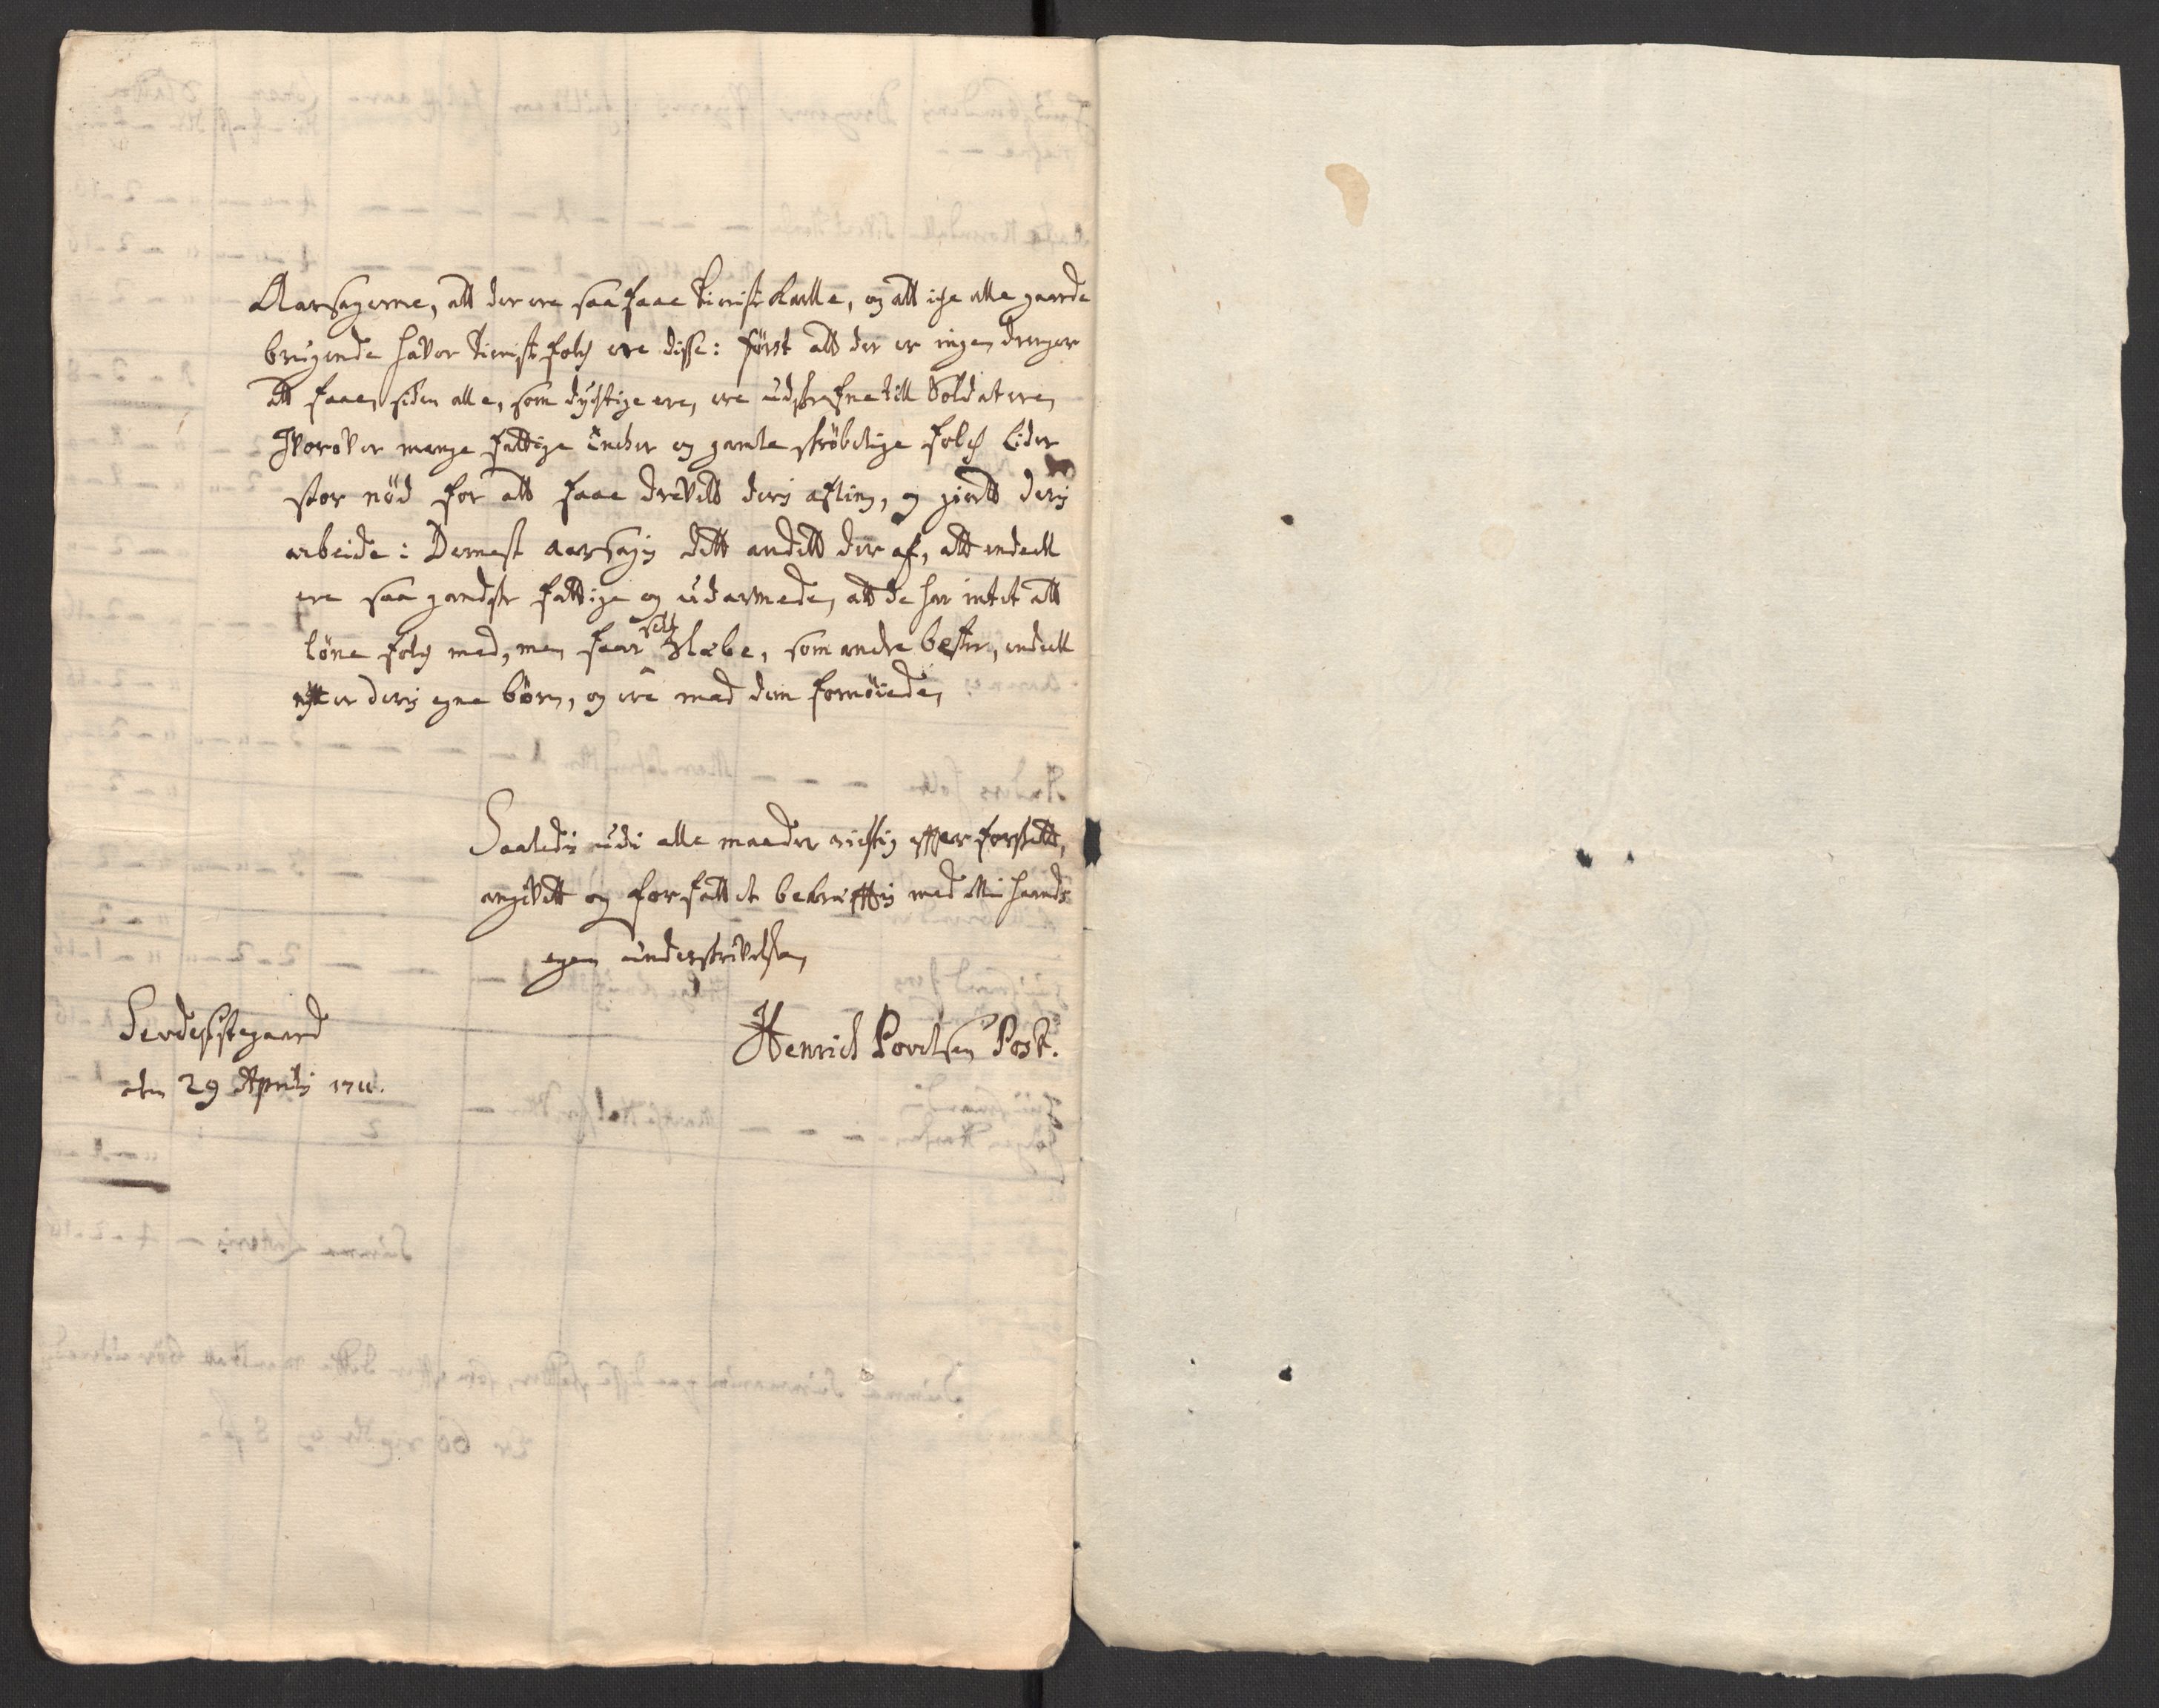 Aarsagerne, att der ere saa faae tienistkarlle, og att iche alle gaarde
brugende haver tienist folch ere disse: först att der er ingen drenger
att faae, siden alle, som dychtige ere, ere udskrefne till Soldatere,
Hvorover mange fattige Encher og gamle skröbelige folch lider
stor nöd for att faae drevett deris afling, og giort deris
arbeide: Dernest aarsagis dett andett der af, att endeell
ere saa gandske fattige og udarmede, att de har intet att
löne folch med, men faar self slæbe, som andre bester, endeell
nytter deris egne börn, og ere med dem fornöiede,
Saaledis udi alle maader richtig effterforskett,
angivett og forfattet bekreffter med Min haands
egen underskrivelse,
Henrich Povelsen Post.
den 29 Aprilis 1711.